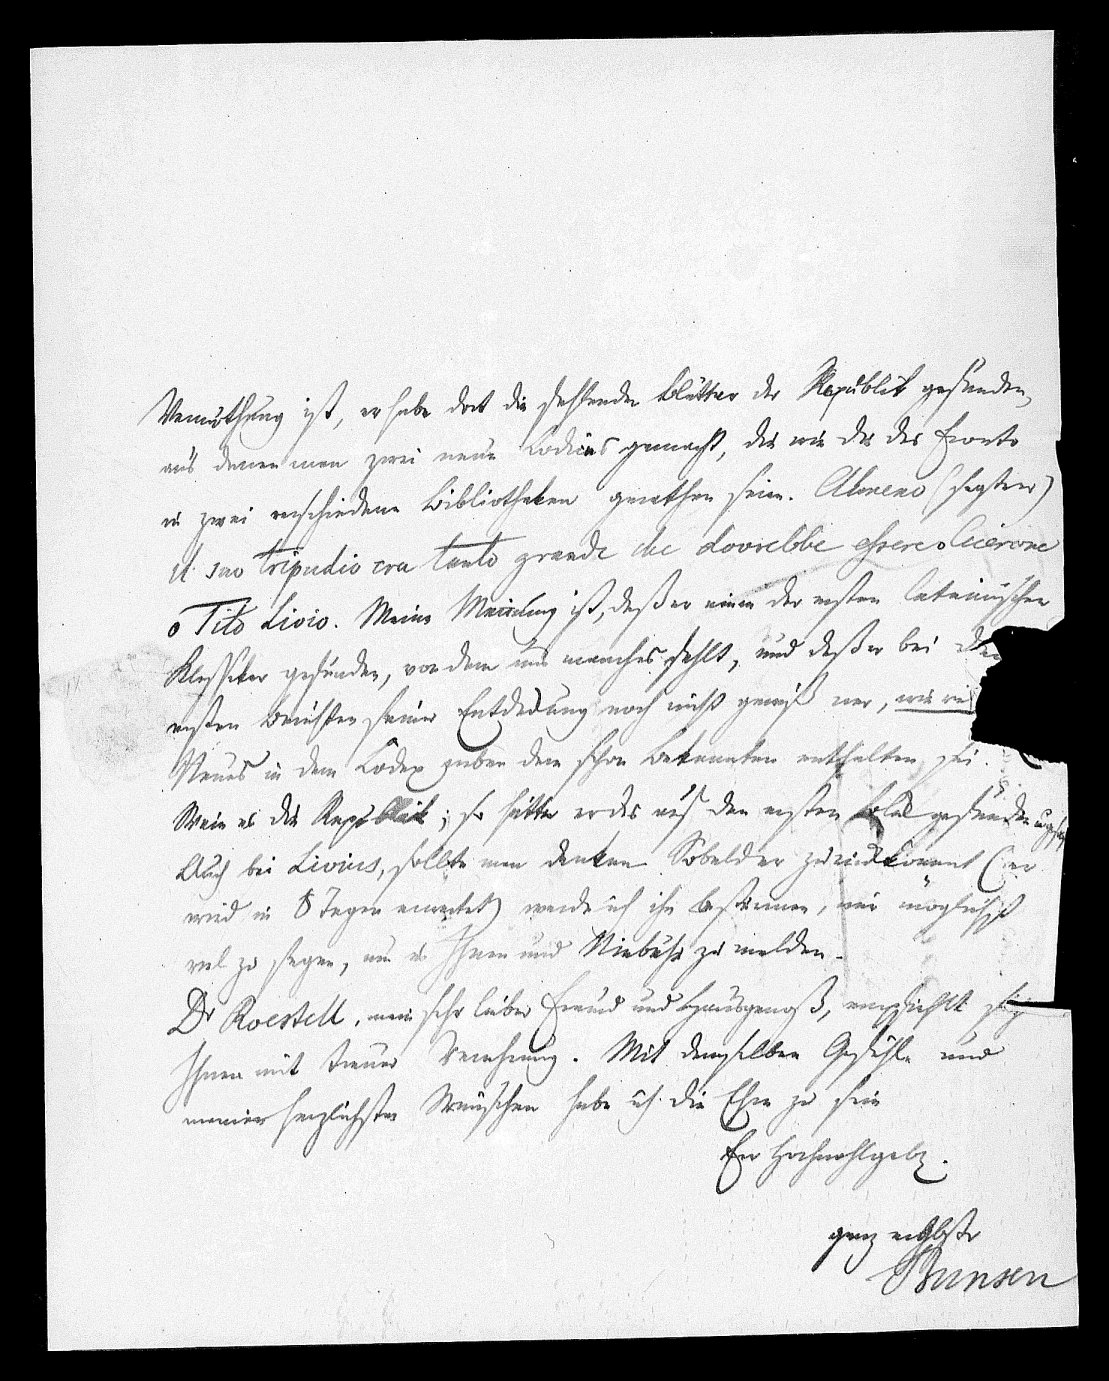 Vermuthung ist, er habe dort die fehlenden Blätter der Republik gefunden,
aus denen man zwei neue Codices gemacht, die wie die des Fronto
in zwei verschiedene Bibliotheken gerathen seien. Almeno (sagte er)
il suo tripudio era tanto grande che dovrebbe essere o Cicerone
o Tito Livio. Meine Meinung ist, daß er einen der ersten lateinischen
Klassiker gefunden, von dem uns manches fehlt, und daß er bei den
ersten Berichten seiner Entdeckung noch nicht gewiß war, wie viel
Neues in dem Codex neben dem schon bekannten enthalten sei.
Wäre es die Republik; so hätte er dies auf den ersten gefunden
Auch bei Livius, sollte man denken. Sobald er zurückkommt (er
wird in 8 Tagen erwartet) werde ich ihn bestürmen, mir möglichst
viel zu sagen, um es Ihnen und Niebuhr zu melden.
Dr Roestell, mein sehr lieber Freund und Hausgenoß, empfiehlt sich
Ihnen mit treuer Verehrung. Mit demselben Gefühle und
meinen herzlichsten Wünschen habe ich die Ehre zu sein
Ew Hochwohlgeb.
ganz
Bunsen